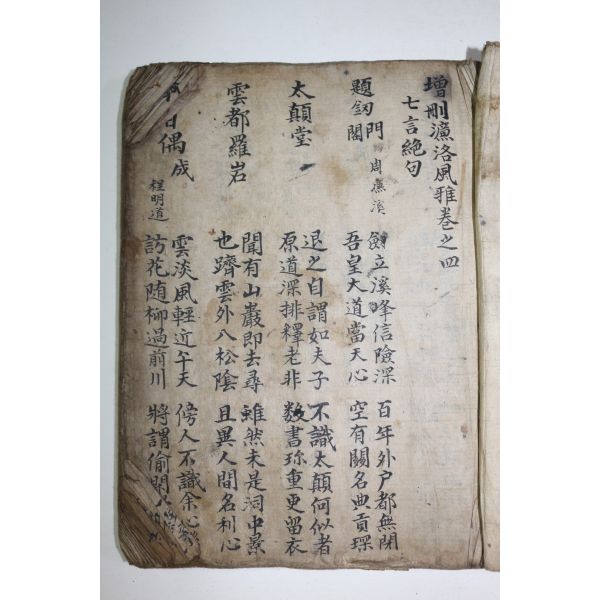 增刪濂洛風雅卷之四
七言絶句
題釰門閣 周濂溪
劍立溪峰信險深
吾皇大道當天心
百年外户都無閉
空有關名典貢琛
太顛堂
退之自謂如夫子
原道深排釋老非
不識太顛何似者
數書珎重更留衣
雲都羅岩
聞有山巖即去尋
也躋雲外八松陰
雖然未是洞中景
且異人間名利心
日偶成 程明道
雲淡風輕近午天
訪花随柳過前川
傍人不識余心
將謂偷閑